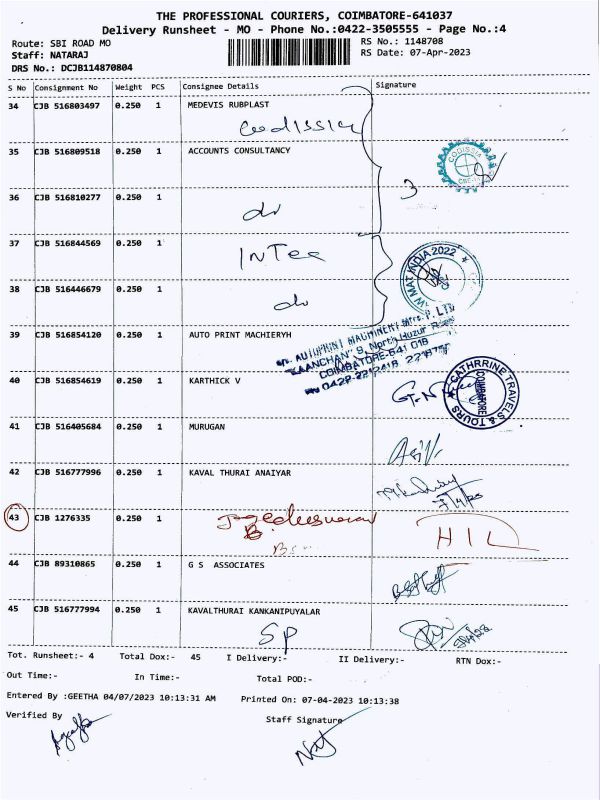 THE PROFESSIONAL COURIERS, COIMBATORE-641037
Delivery Runsheet - MO - Phone No.:0422-3505555 - Page No.:4
Route: SBI ROAD MO
RS No.: 1148708
Staff: NATARAJ
RS Date: 07-Apr-2023
DRS No.: DCJB114870804
S No Consignment No Weight PCS Consignee Details Signature
34 CJB 516803497 0.250 1 MEDEVIS RUBPLAST
codissia
35 CJB 516809518 0.250 1 ACCOUNTS CONSULTANCY
CODISSIA
3
36 CJB 516810277 0.250 1
do
37 CJB 516844569 0.250 1 INTEC
INDIA 2022
38 CJB 516446679 0.250 1
do
39 CJB 516854120 0.250 1 AUTO PRINT MACHIERYH
AUTOPRINT MACHINERY Mfrs. P. LTD
"KAANCHAN" 9, North Huzur Road
COIMBATORE-641 018
40 CJB 516854619 0.250 1 KARTHICK V
CATHRRINE TRAVELS & TOURS
COIMBATORE
41 CJB 516405684 0.250 1 MURUGAN
42 CJB 516777996 0.250 1 KAVAL THURAI ANAIYAR
43 CJB 1276335 0.250 1
HIL
44 CJB 89310865 0.250 1 G S ASSOCIATES
45 CJB 516777994 0.250 1 KAVALTHURAI KANKANIPUYALAR
SP
Tot. Runsheet:- 4 Total Dox:- 45 I Delivery:- II Delivery:- RTN Dox:-
Out Time:- In Time:- Total POD:-
Entered By :GEETHA 04/07/2023 10:13:31 AM Printed On: 07-04-2023 10:13:38
Verified By Staff Signature